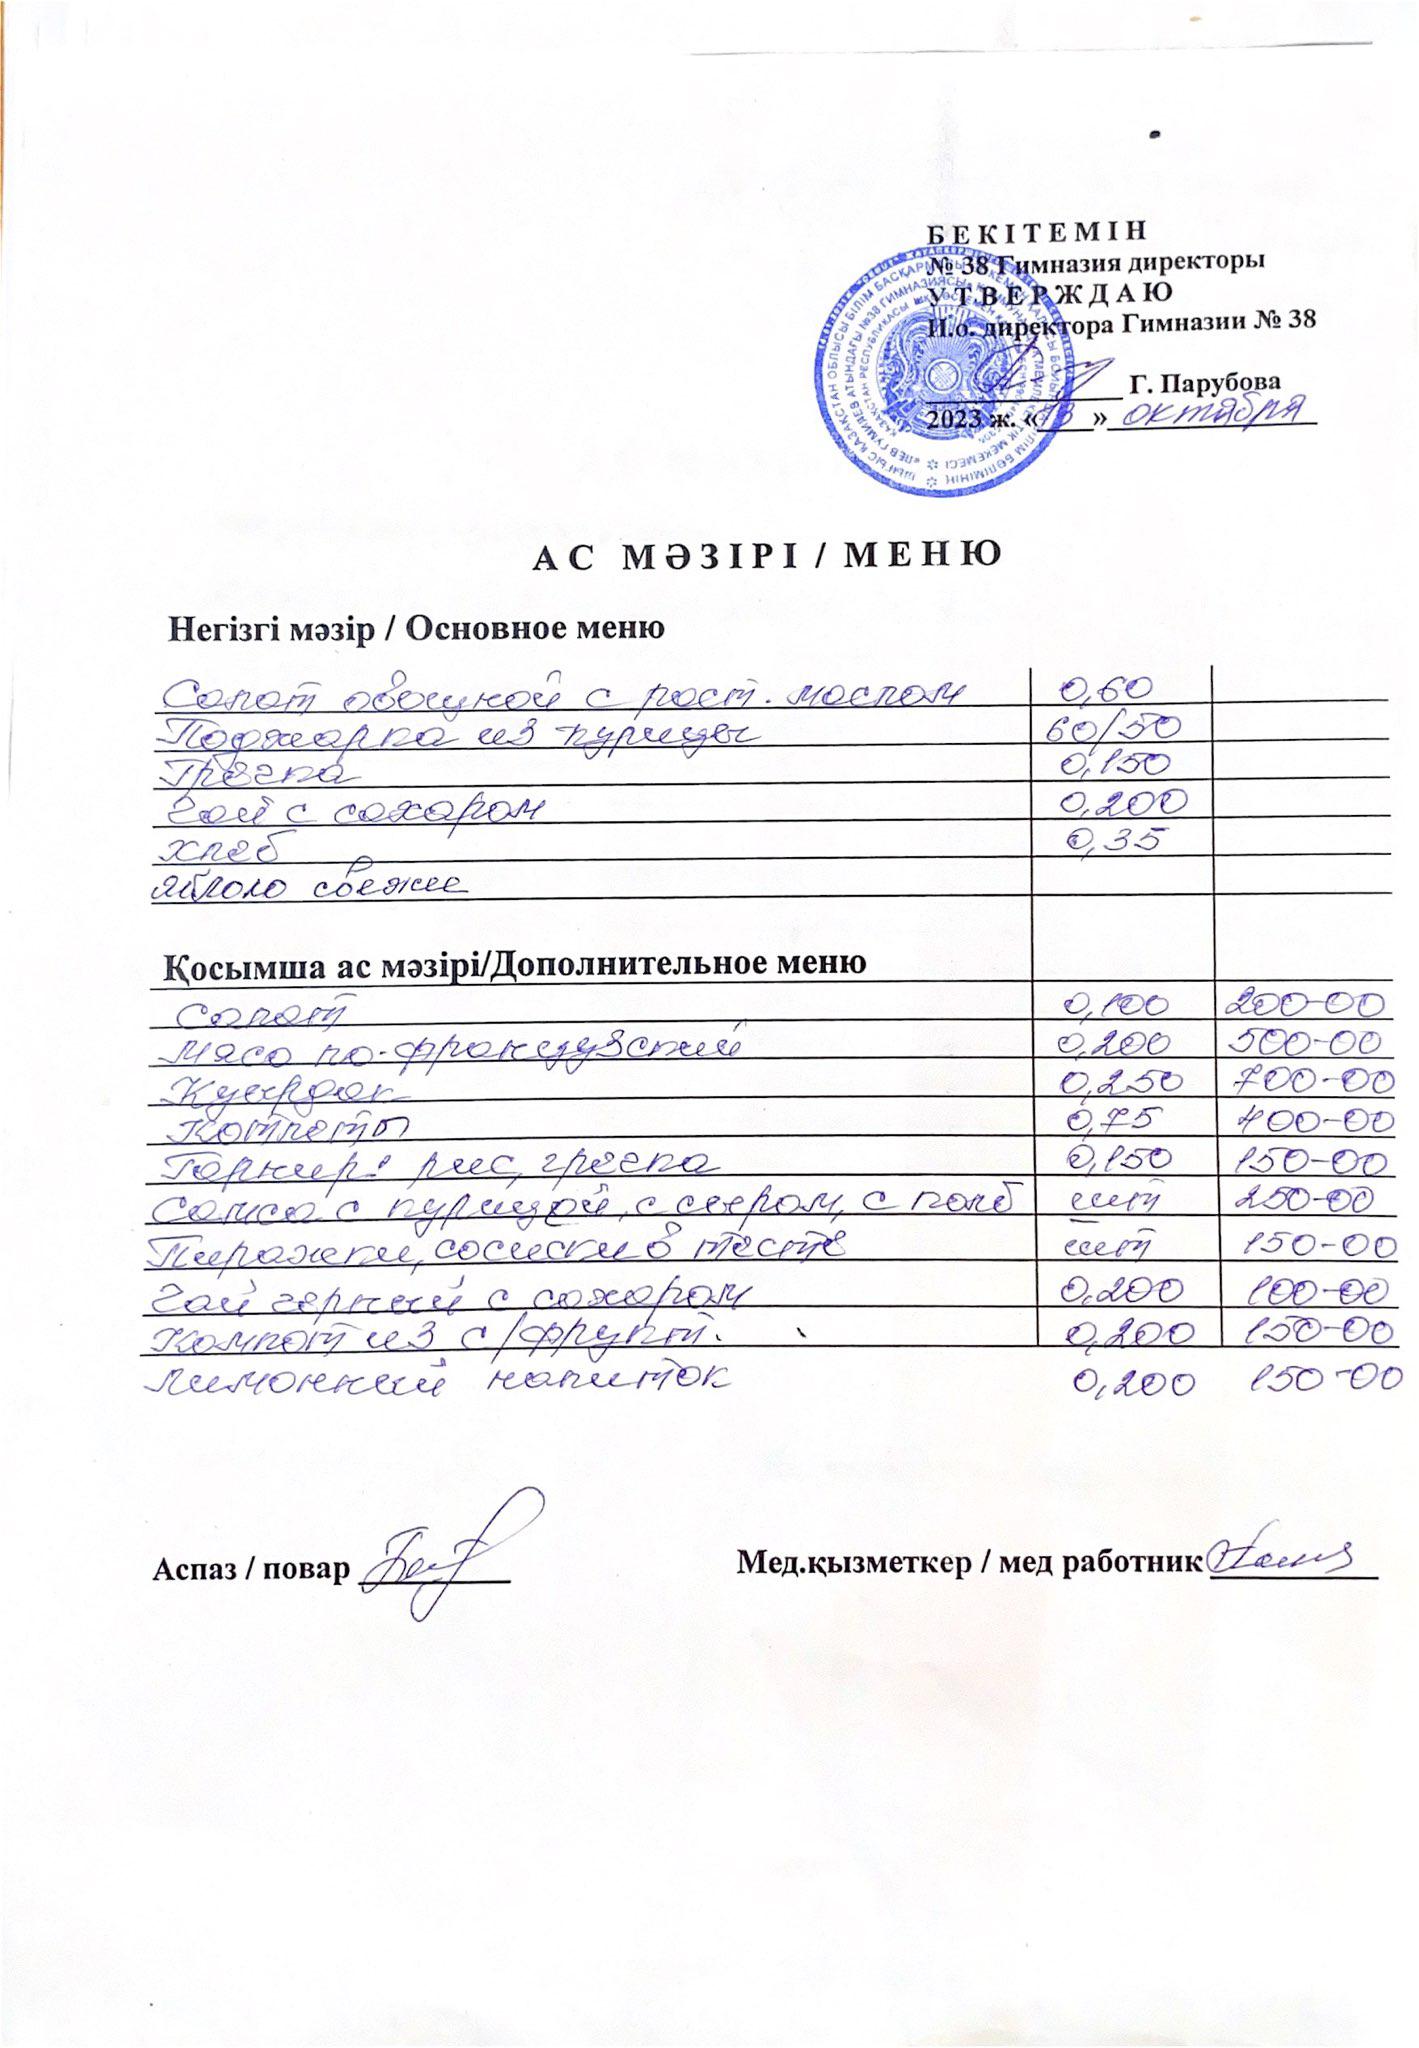 Б Е К І Т Е М І Н
№ 38 Гимназия директоры
У Т В Е Р Ж Д А Ю
И.о. директора Гимназии № 38
Г. Парубова
2023 ж. «13» октября
А С М Ә З І Р І / М Е Н Ю
Негізгі мәзір / Основное меню
Салат овощной с раст. маслом 0,60
Поджарка из курицы 60/50
Гречка 0,150
Чай с сахаром 0,200
Хлеб 0,35
Яблоко свежее
Қосымша ас мәзірі/Дополнительное меню
Салат 0,100 200-00
Мясо по-французский 0,200 500-00
Куырдак 0,250 700-00
Котлеты 0,75 400-00
Гарнир: рис, гречка 0,150 150-00
Самса с курицой, с сыром, с колб шт 250-00
Пирожки, сосиски в тесте шт 150-00
Чай черный с сахаром 0.200 100-00
Компот из с/фрукт. 0,200 150-00
Лимонный напиток 0,200 150-00
Аспаз / повар
Мед.қызметкер / мед работник